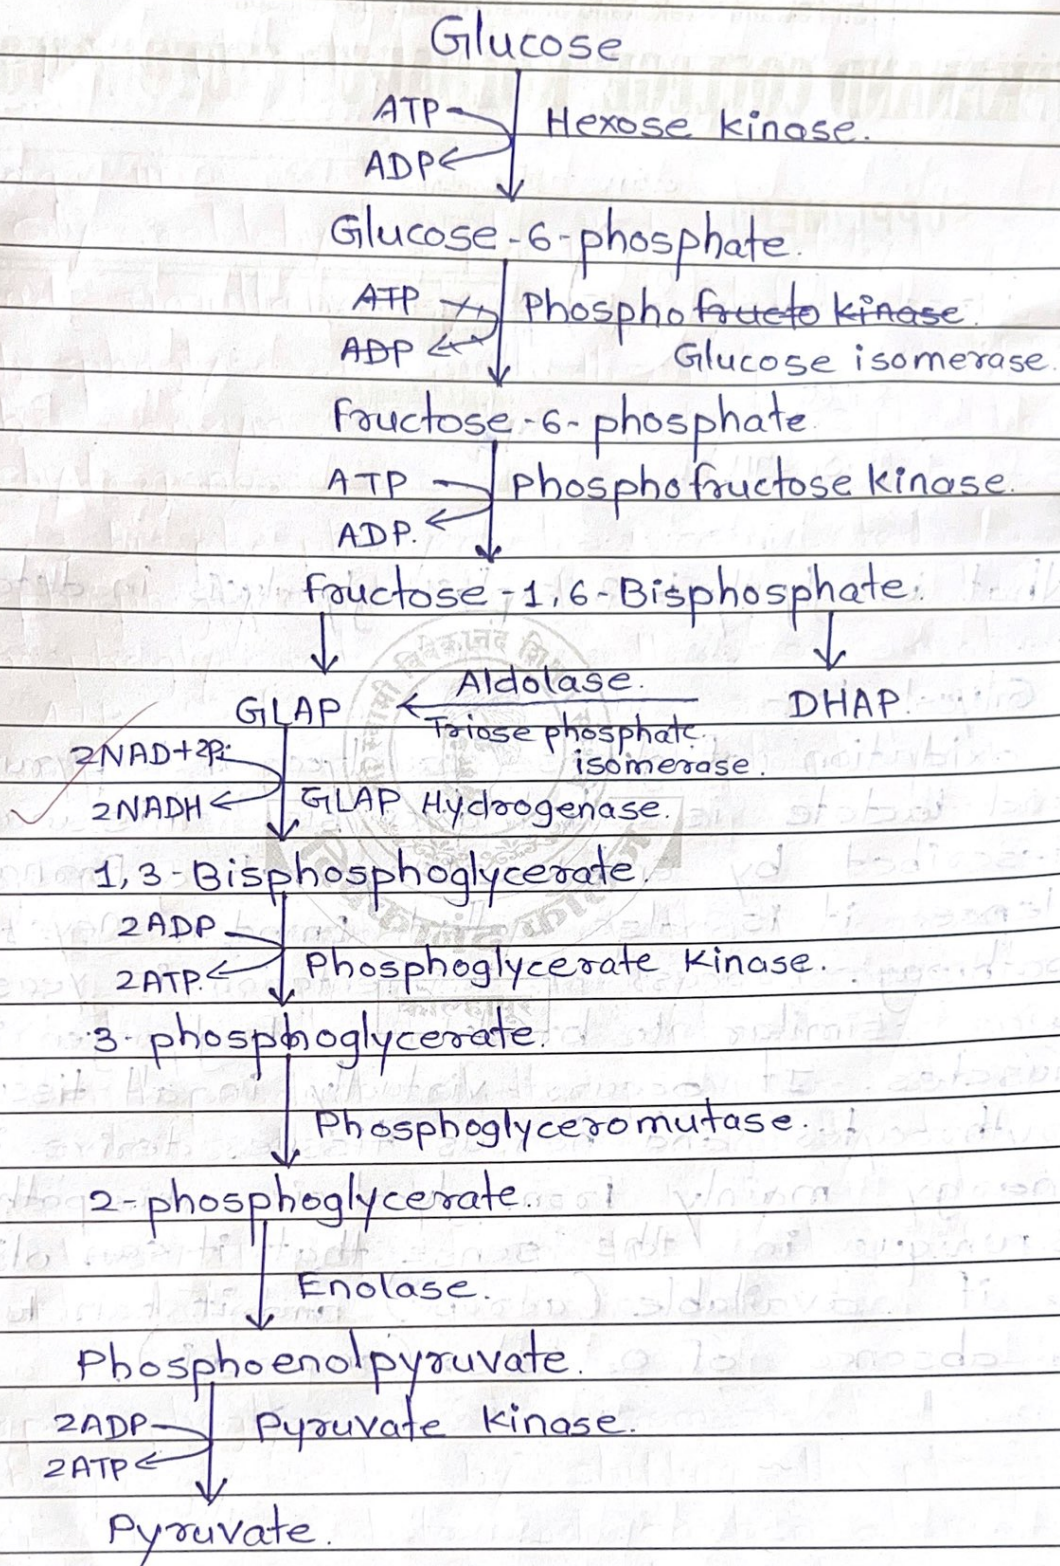 Glucose
ATP
Hexose kinase.
ADP
Glucose-6-phosphate.
ATP
Phosphofructo kinase.
ADP
Glucose isomerase.
fructose-6-phosphate.
ATP
Phosphofructose kinase.
ADP.
fructose-1,6-Bisphosphate.
Aldolase.
GLAP
DHAP.
Triose phosphate
isomerase.
2NAD+2Pi
2NADH
GLAP Hydrogenase.
1,3-Bisphosphoglycerate.
2ADP
2ATP.
Phosphoglycerate Kinase.
3-phosphoglycerate.
Phosphoglyceromutase.
2-phosphoglycerate.
Enolase.
Phosphoenolpyruvate.
2ADP
Pyruvate Kinase.
2ATP
Pyruvate.